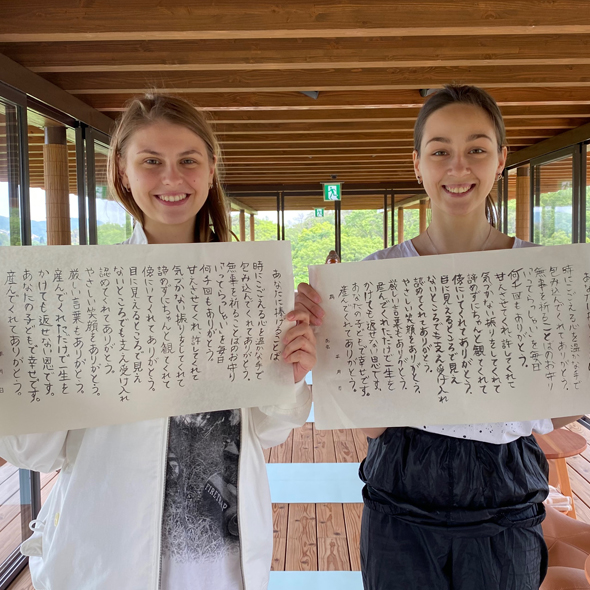 あなたに捧ぐことば
時にこごえる心を温かな手で
包み込んでくれてありがとう。
無事を祈ることばのお守り
いってらっしゃいを毎日
何千回もありがとう。
甘えさせてくれ許してくれて
気づかない振りをしてくれて
諦めずにちゃんと観てくれて
傍にいてくれてありがとう。
目に見えるところで見え
ないところでも支え受け入れ
認めてくれてありがとう。
やさしい笑顔をありがとう。
厳しい言葉もありがとう。
産んでくれただけで一生を
かけても返せない恩です。
あなたの子どもで幸せです。
産んでくれてありがとう。
月 日
時にこごえる心を温かな手で
包み込んでくれてありがとう。
無事を祈ることばのお守り
いってらっしゃいを毎日
何千回もありがとう。
甘えさせてくれ許してくれて
気づかない振りをしてくれて
諦めずちゃんと観てくれて
傍にいてくれてありがとう。
目に見えるところで見え
ないところでも支え受け入れ
認めてくれてありがとう。
やさしい笑顔をありがとう。
厳しい言葉もありがとう。
産んでくれただけで一生を
かけても返せない恩です。
あなたの子どもで幸せです。
産んでくれてありがとう。
月 日